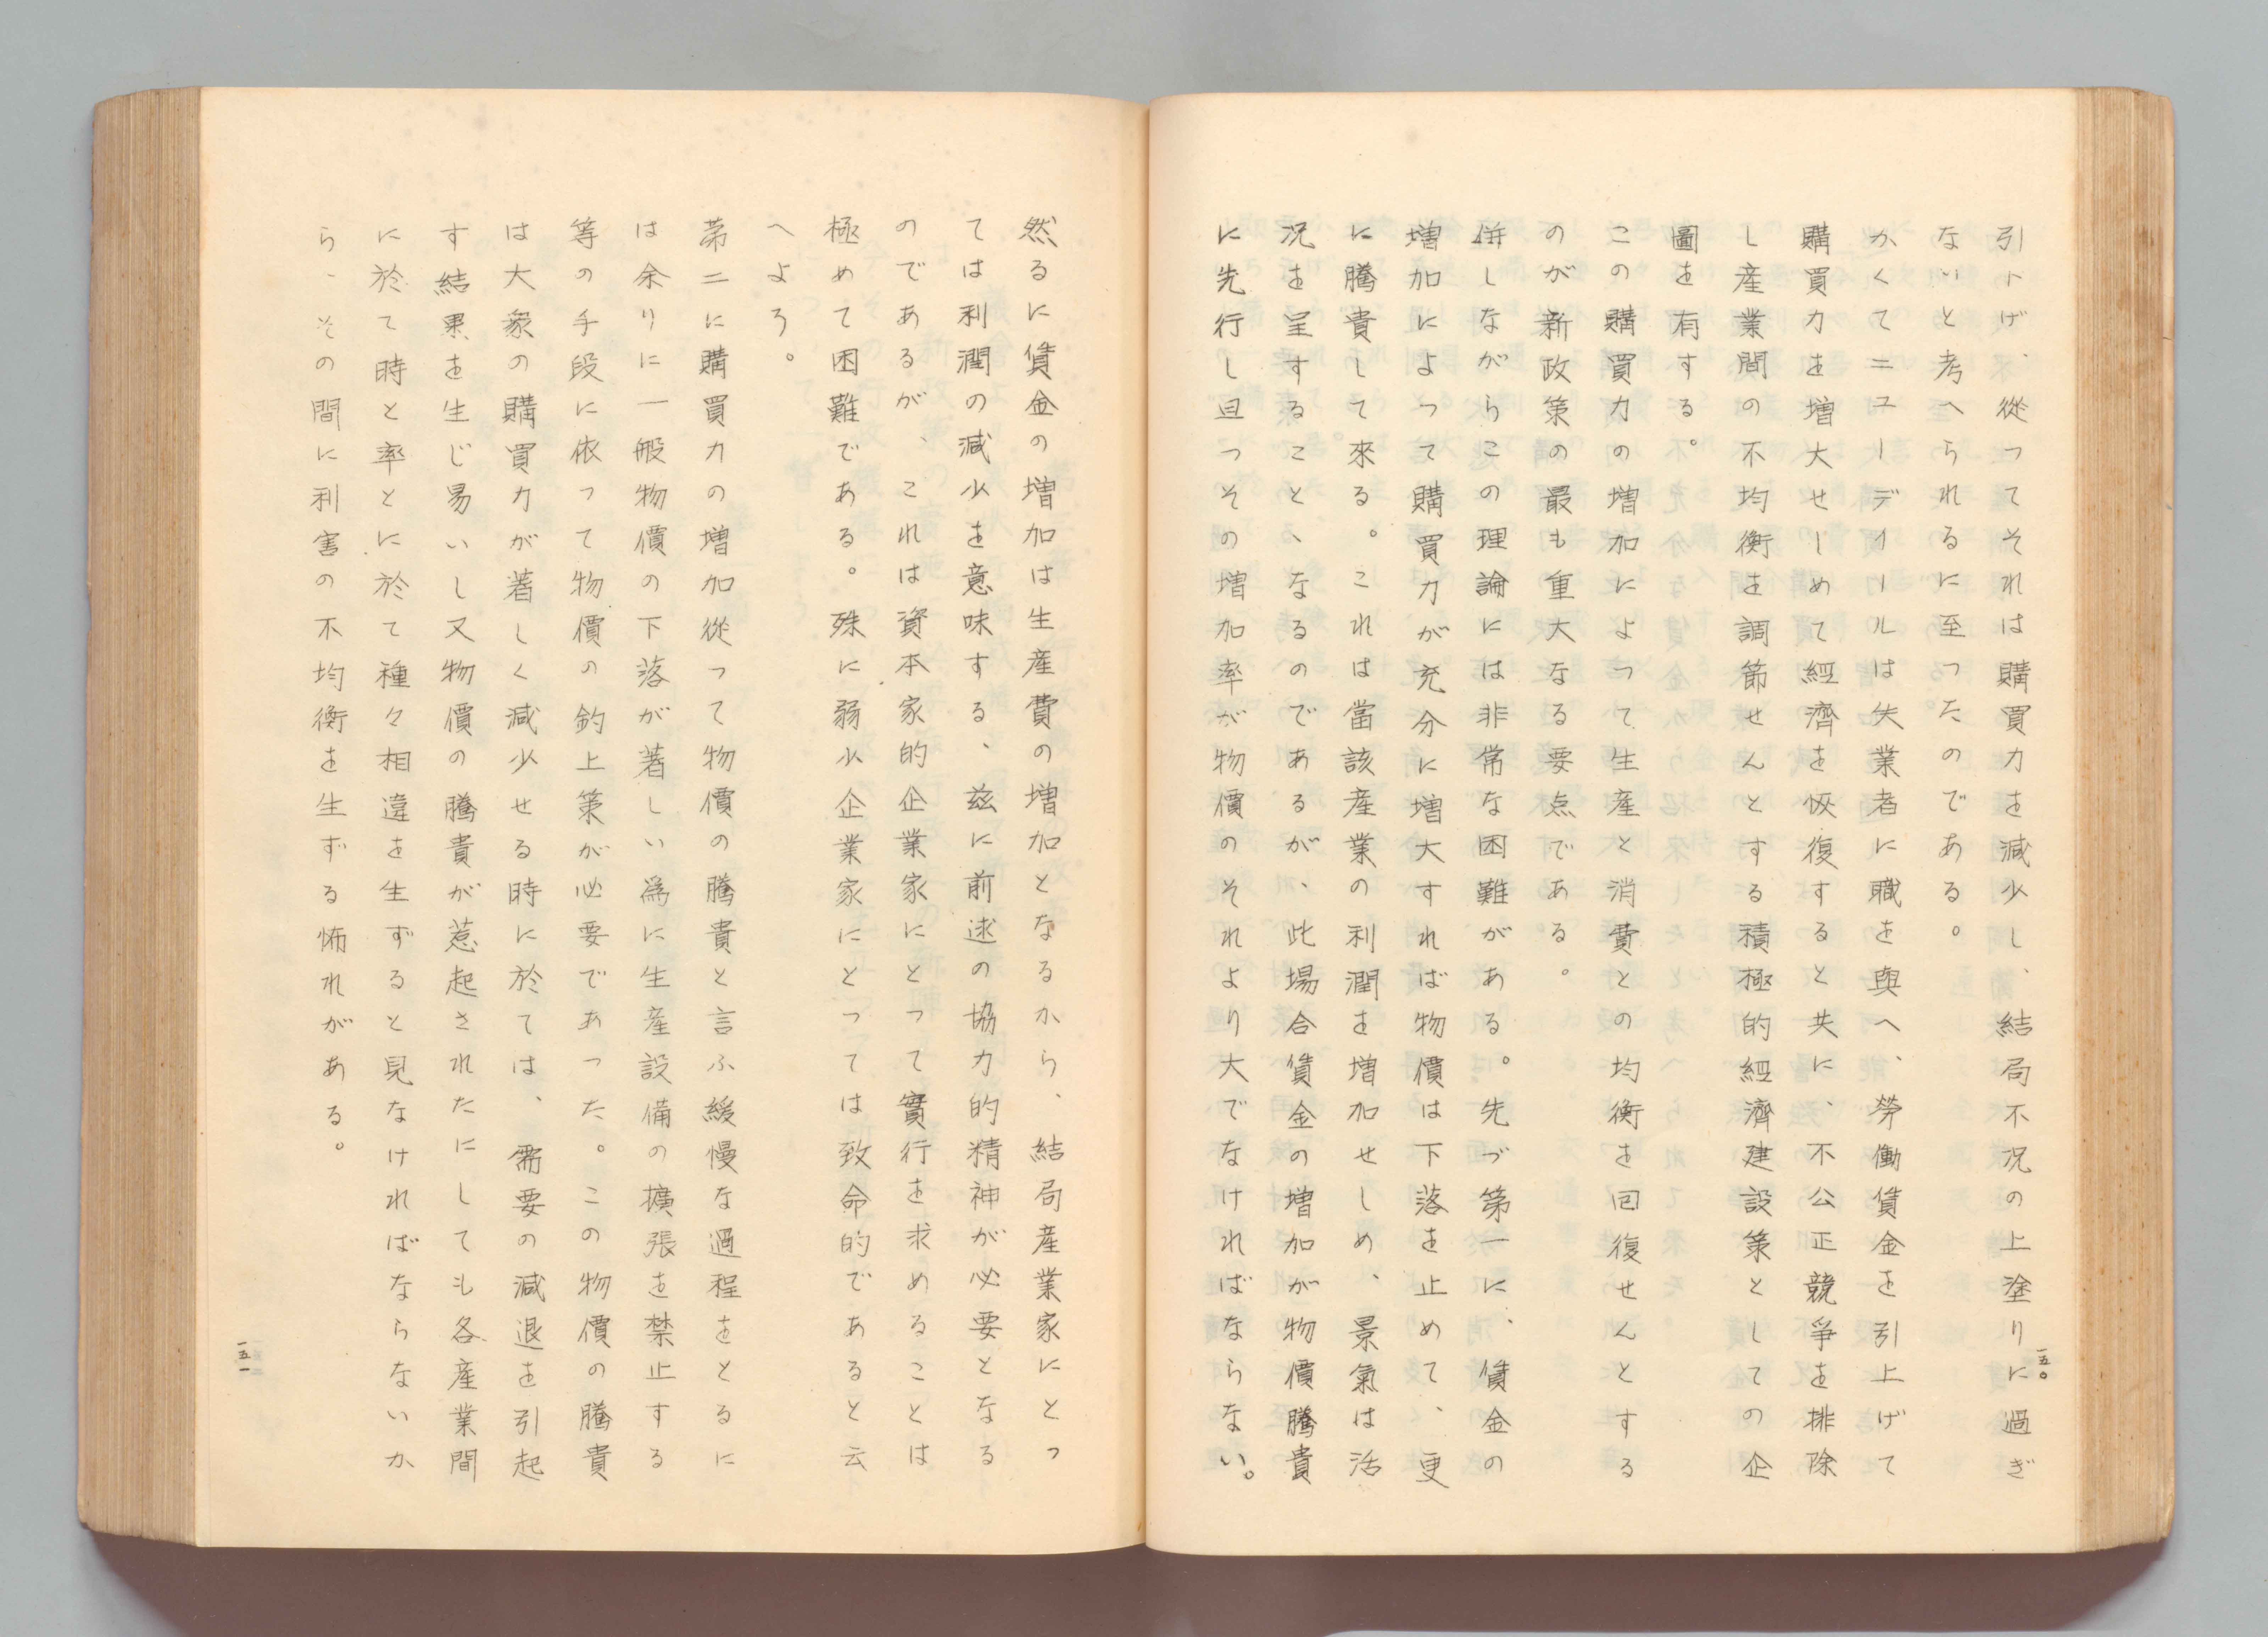 引下げ、從ってそれは購買力を減少し、結局不況の上塗りに過ぎ
ないと考へられるに至ったのである。
かくてニューディールは失業者に職を與へ、勞働賃金を引上げて
購買力を増大せしめて經濟を恢復すると共に、不公正競爭を排除
し産業間の不均衡を調節せんとする積極的經濟建設策としての企
圖を有する。
この購買力の増加によって生産と消費との均衡を回復せんとする
のが新政策の最も重大なる要点である。
併しながらこの理論には非常な困難がある。先づ第一に、賃金の
増加によって購買力が充分に増大すれば物價は下落を止めて、更
に騰貴して來る。これは當該産業の利潤を増加せしめ、景氣は活
況を呈すること、なるのであるが、此場合賃金の増加が物價騰貴
に先行し且つその増加率が物價のそれより大でなければならない。
一五〇
然るに賃金の増加は生産費の増加となるから、結局産業家にとっ
ては利潤の減少を意味する、茲に前述の協力的精神が必要となる
のであるが、これは資本家的企業家にとって實行を求めることは
極めて困難である。殊に弱小企業家にとっては致命的であると云
へよう。
第二に購買力の増加從って物價の騰貴と言ふ緩慢な過程をとるに
は余りに一般物價の下落が著しい爲に生産設備の擴張を禁止する
等の手段に依って物價の釣上策が必要であった。この物價の騰貴
は大衆の購買力が著しく減少せる時に於ては、需要の減退を引起
す結果を生じ易いし又物價の騰貴が惹起されたにしても各産業間
に於て時と率とに於て種々相違を生ずると見なければならないか
ら、その間に利害の不均衡を生ずる怖れがある。
一五一